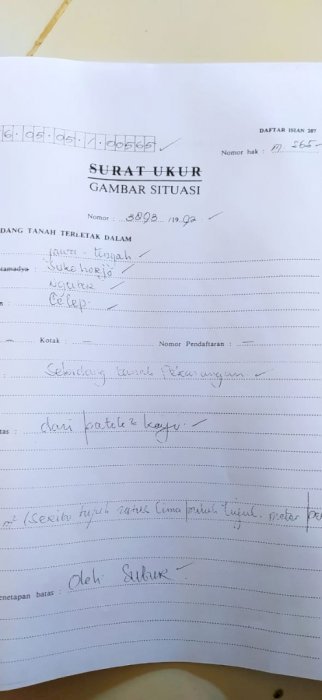 6.05.05.1.00565
DAFTAR ISIAN 207
Nomor hak : M 565
SURAT UKUR
GAMBAR SITUASI
Nomor : 3893 /19 92
DANG TANAH TERLETAK DALAM
Jawa - Tengah
tamadya Sukoharjo
Nguter
n : Celep
– Kotak : – Nomor Pendaftaran : –
Sebidang tanah Pekarangan
tas : dari patok2 kayu
m² (seribu tujuh ratus lima puluh tujuh meter
enetapan batas : Oleh